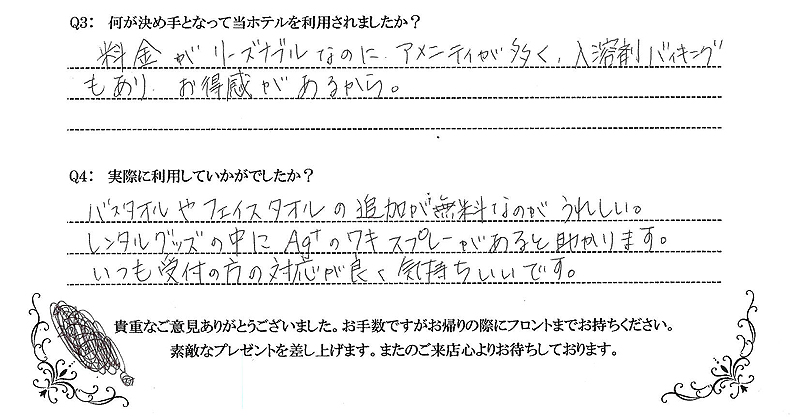 Q3： 何が決め手となって当ホテルを利用されましたか？
料金がリーズナブルなのに、アメニティが多く、入溶剤バイキング
もあり、お得感があるから。
Q4： 実際に利用していかがでしたか？
バスタオルやフェイスタオルの追加が無料なのがうれしい。
レンタルグッズの中にAg⁺のワキスプレーがあると助かります。
いつも受付の方の対応が良く気持ちいいです。
貴重なご意見ありがとうございました。お手数ですがお帰りの際にフロントまでお持ちください。
素敵なプレゼントを差し上げます。またのご来店心よりお待ちしております。